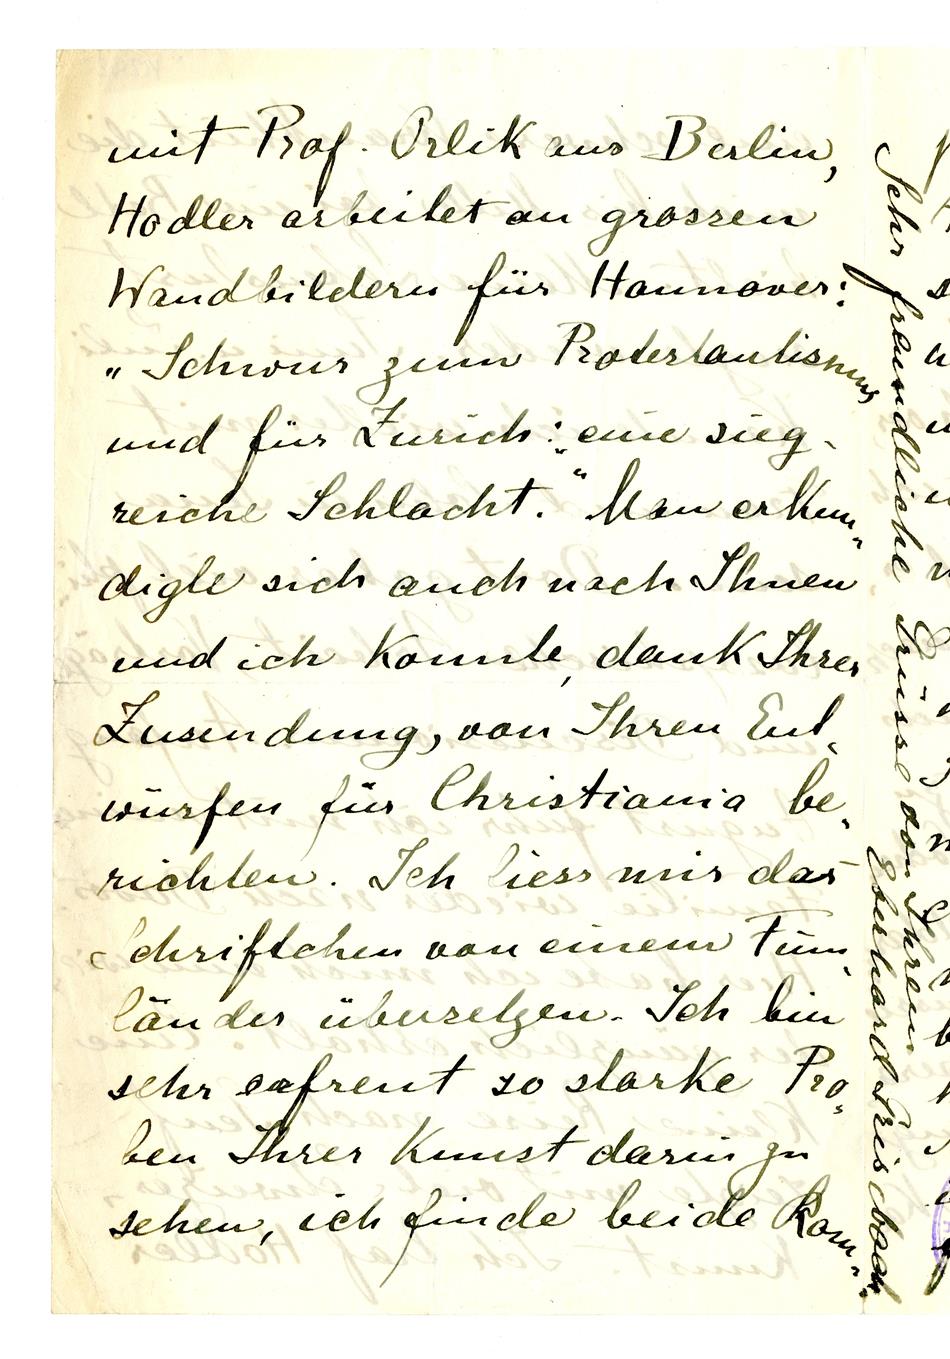 mit Prof. Orlik aus Berlin,
Hodler arbeitet an grossen
Wandbildern für Hannover:
„Schwur zum Protestantismus
und für Zürich: „eine sieg-
reiche Schlacht.“ Man erkun-
digte sich auch nach Ihnen
und ich konnte, dank Ihrer
Zusendung, von Ihren Ent-
würfen für Christiania be-
richten. Ich liess mir das
Schriftchen von einem Finn-
länder übersetzen. Ich bin
sehr erfreut so starke Pro-
ben Ihrer Kunst darin zu
sehen, ich finde beide Kom-
Sehr freundliche Grüsse von Ihrem
Eberhard Grisebach